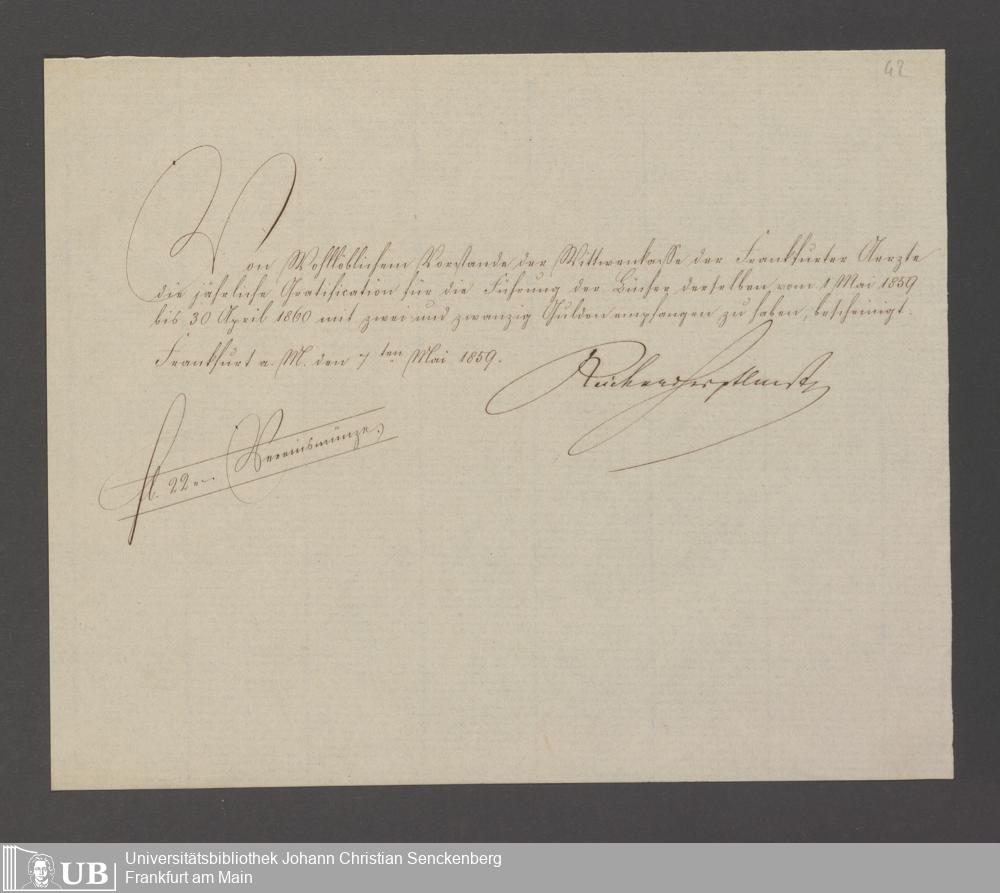 42
Von Wohllöblichem Vorstande der Wittwenkasse der Frankfurter Aerzte
die jährliche Gratification für die Führung der Bücher derselben vom 1 Mai 1859
bis 30 April 1860 mit zwei und zwanzig Gulden empfangen zu haben, bescheinigt.
Frankfurt a. M. den 7ten Mai 1859.
fl. 22 Vereinsmünze.
UB
Universitätsbibliothek Johann Christian Senckenberg
Frankfurt am Main